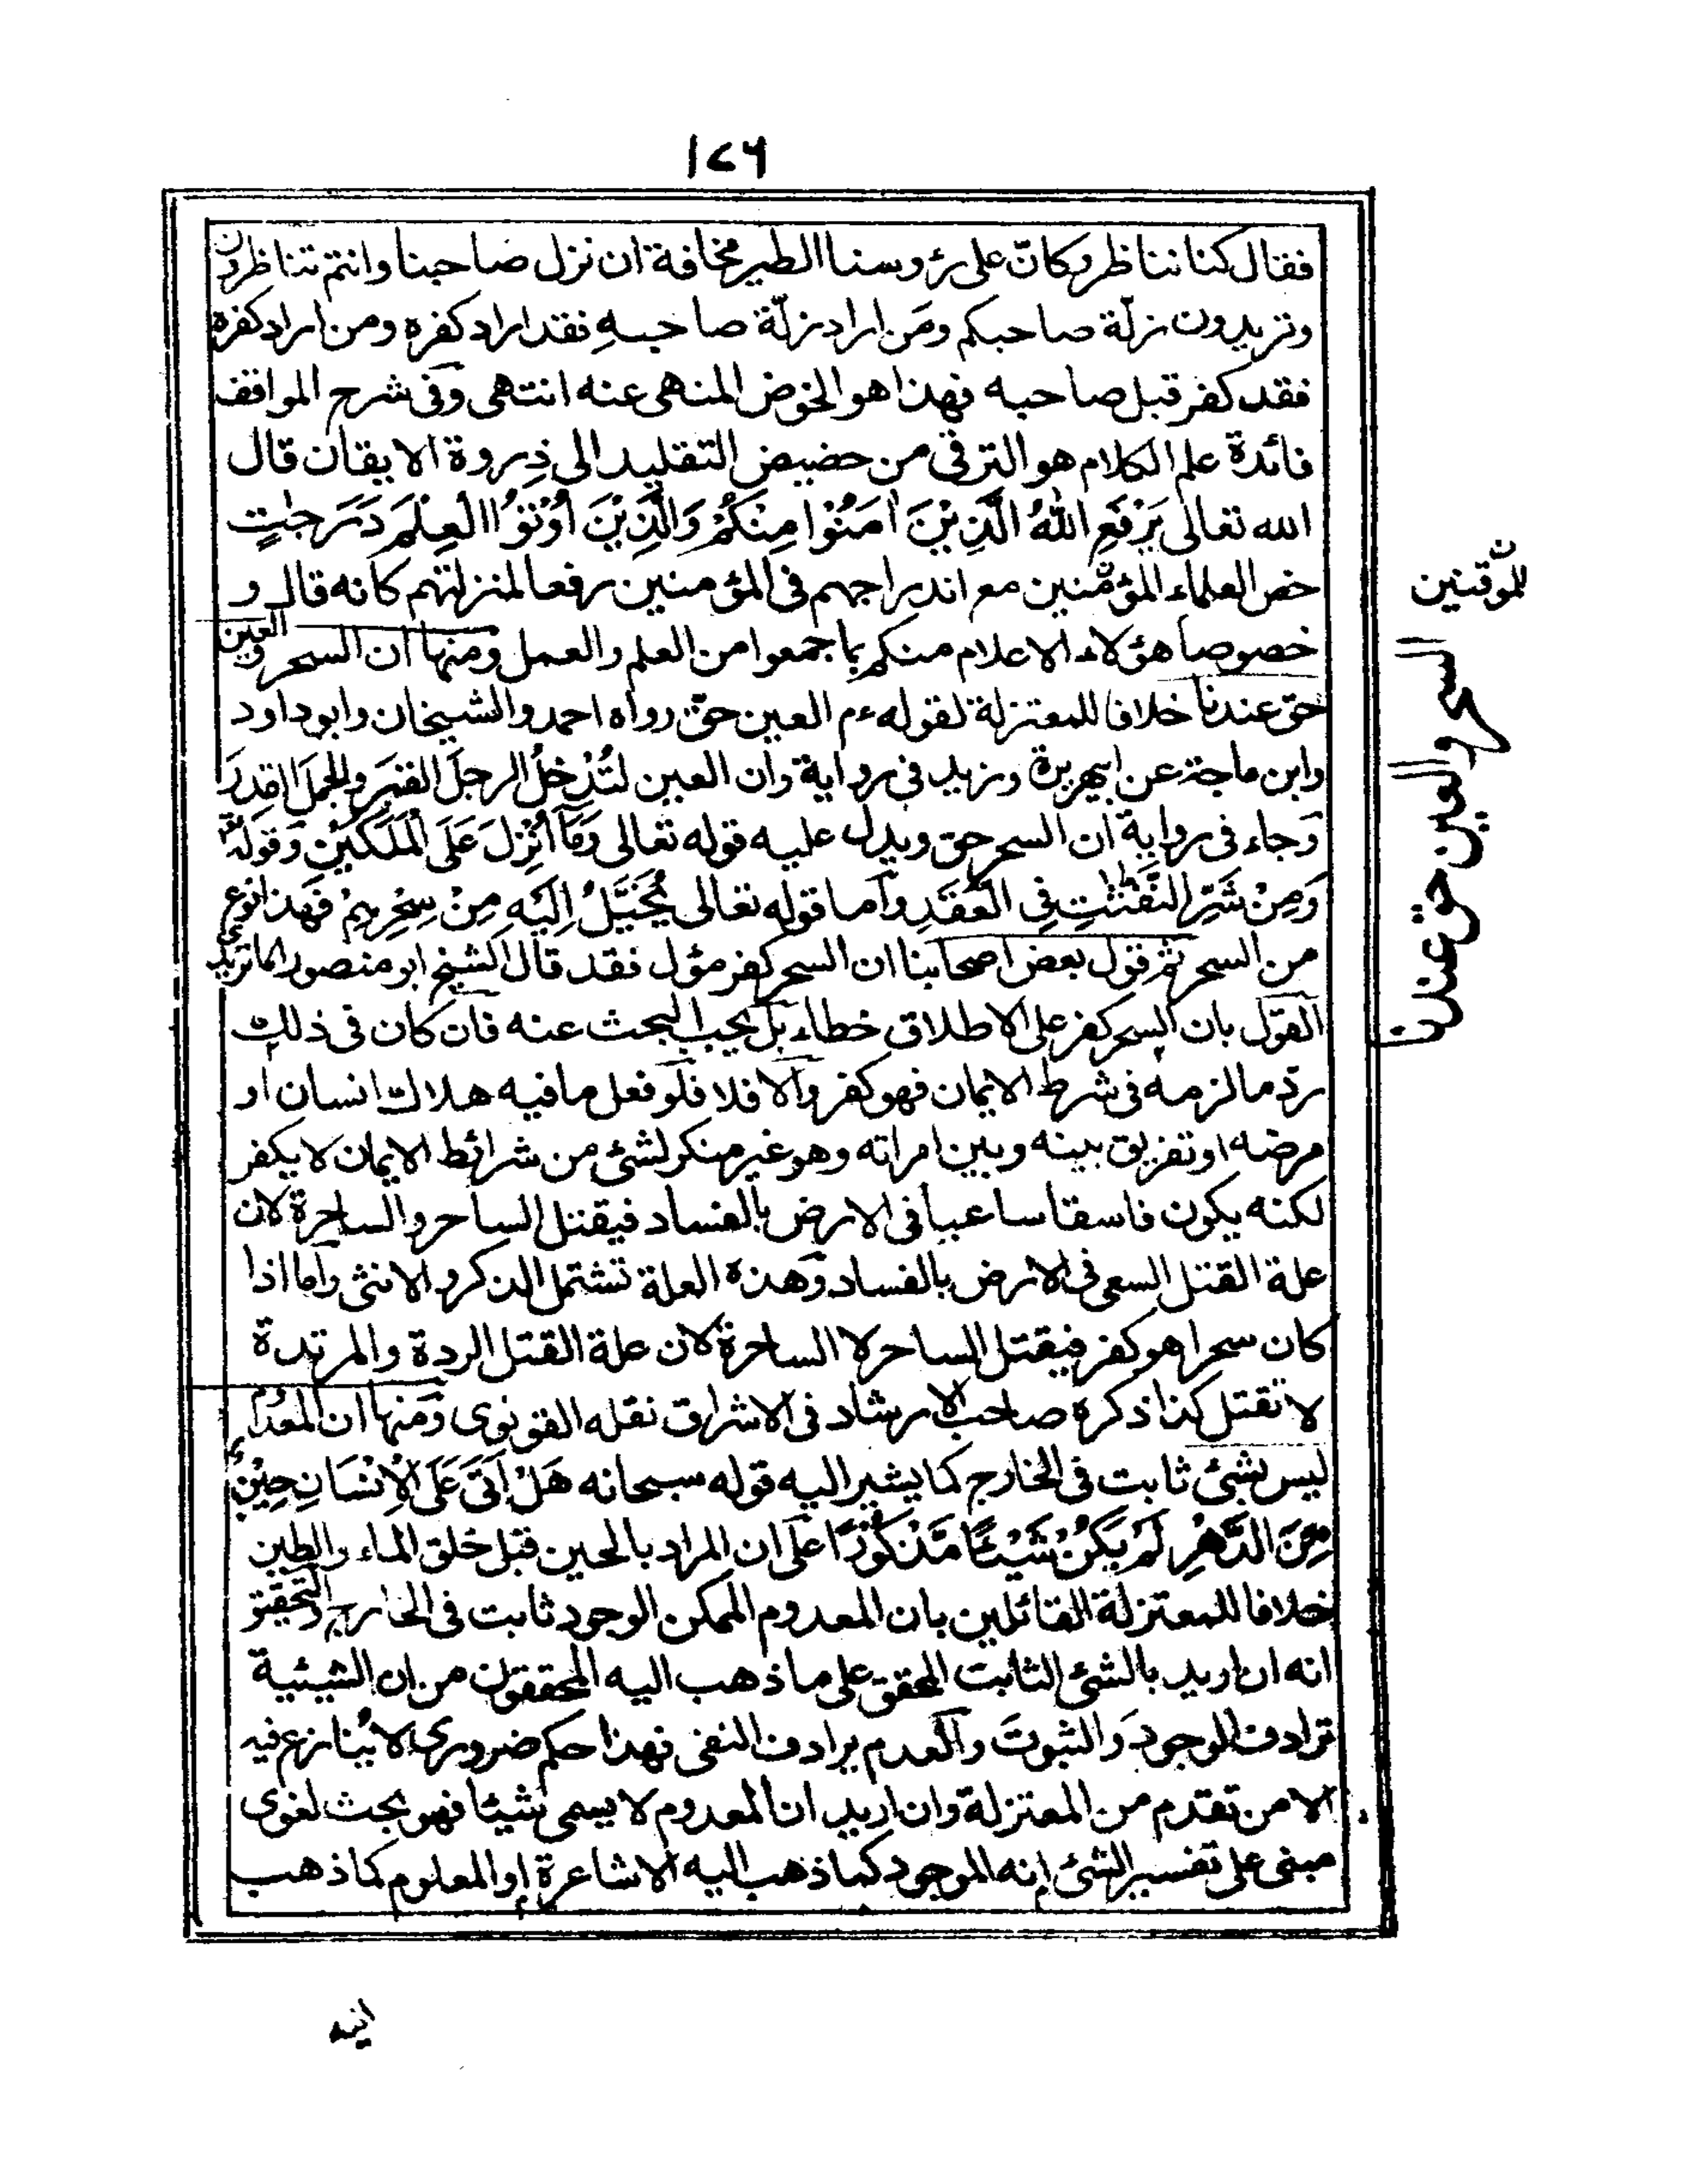 ١٧٦
فقال كنا نناظر وكانّ على رؤوسنا الطير مخافة ان نزل صاحبنا وانتم تناظرون
وتريدون زلّة صاحبكم ومَن اراد زلّة صاحبهِ فقد اراد كفره ومن اراد كفره
فقد كفر قبل صاحبه فهذا هو الخوض المنهى عنه انتهى وفى شرح المواقف
فائدة علم الكلام هو الترقى من حضيض التقليد الى ذِروة الايقان قال
الله تعالى يَرْفَعِ اللهُ الَّذِيْنَ اٰمَنُوْا مِنْكُمْ وَالَّذِيْنَ اُوْتُوا الْعِلْمَ دَرَجٰتٍ
خص العلماء المؤمنين مع اندراجهم فى المؤمنين رفعا لمنزلتهم كانه قال و
خصوصا هؤلاء الاعلام منكم بما جمعوا من العلم والعمل ومنها ان السحر والعين
حق عندنا خلافا للمعتزلة لقوله ءم العين حق رواه احمد والشيخان وابوداود
وابن ماجة عن ابيهريرة وزيد فى رواية وان العين لتُدْخِلُ الرجلَ القبرَ والجملَ القِدرَ
وجاء فى رواية ان السحر حق ويدل عليه قوله تعالى وَمَآ اُنْزِلَ عَلَى الْمَلَكَيْنِ وَقوله
وَمِنْ شَرِّ النَّفّٰثٰتِ فِى الْعُقَدِ وآما قوله تعالى يُخَيَّلُ اِلَيْهِ مِنْ سِحْرِهِمْ فهذا نوع
من السحر ثم قول بعض اصحابنا ان السحر كفر مؤل فقد قال الشيخ ابو منصور الماتريدى
القول بان السحر كفر على الاطلاق خطاء بل يجب البحث عنه فان كان فى ذلك
ردّ ما لزمه فى شرط الايمان فهو كفر والا فلا فلو فعل ما فيه هلاك انسان او
مرضه او تفريق بينه وبين امراته وهو غير منكر لشئ من شرائط الايمان لا يكفر
لكنه يكون فاسقا ساعيا فى الارض بالفساد فيقتل الساحر والساحرة لان
علة القتل السعى فى الارض بالفساد وهذه العلة تشتمل الذكر والانثى واما اذا
كان سحرا هو كفر فيقتل الساحر لا الساحرة لان علة القتل الردة والمرتدة
لا تقتل كذا ذكره صاحب الارشاد فى الاشراق نقله القونوى ومنها ان المعدوم
ليس بشئ ثابت فى الخارج كما يشير اليه قوله سبحانه هَلْ اَتٰى عَلَى الْاِنْسَانِ حِيْنٌ
مِّنَ الدَّهْرِ لَمْ يَكُنْ شَيْئًا مَّذْكُوْرًا على ان المراد بالحين قبل خلق الماء والطين
خلافا للمعتزلة القائلين بان المعدوم الممكن الوجود ثابت فى الخارج والتحقيق
انه ان اريد بالشئ الثابت المحقق على ما ذهب اليه المحققون من ان الشيئية
ترادف الوجودَ والثبوتَ والعدم يرادف النفى فهذا حكم ضرورى لا يُنازع فيه
الا من تقدم من المعتزلة وان اريد ان المعدوم لا يسمى شيئا فهو بحث لغوى
مبنى على تفسير الشئ انه الموجود كما ذهب اليه الاشاعرة او المعلوم كما ذهب
للموقنين
السحر والعين حق عندنا
اليه